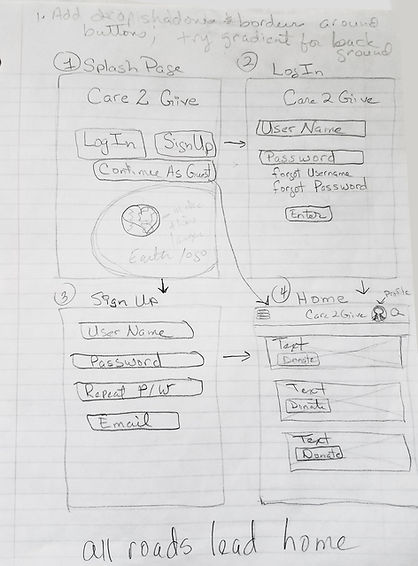 1. Add drop shadows & borders around
buttons, try gradient for back
ground
1 Splash Page
Care 2 Give
Log In
Sign Up
Continue As Guest
make
this
larger
Earth logo
2 Log In
Care 2 Give
User Name
Password
forgot Username
forgot Password
Enter
3 Sign Up
User Name
Password
Repeat P/W
Email
4 Home
Profile
Care 2 Give
Text
Donate
Text
Donate
Text
Donate
all roads lead home